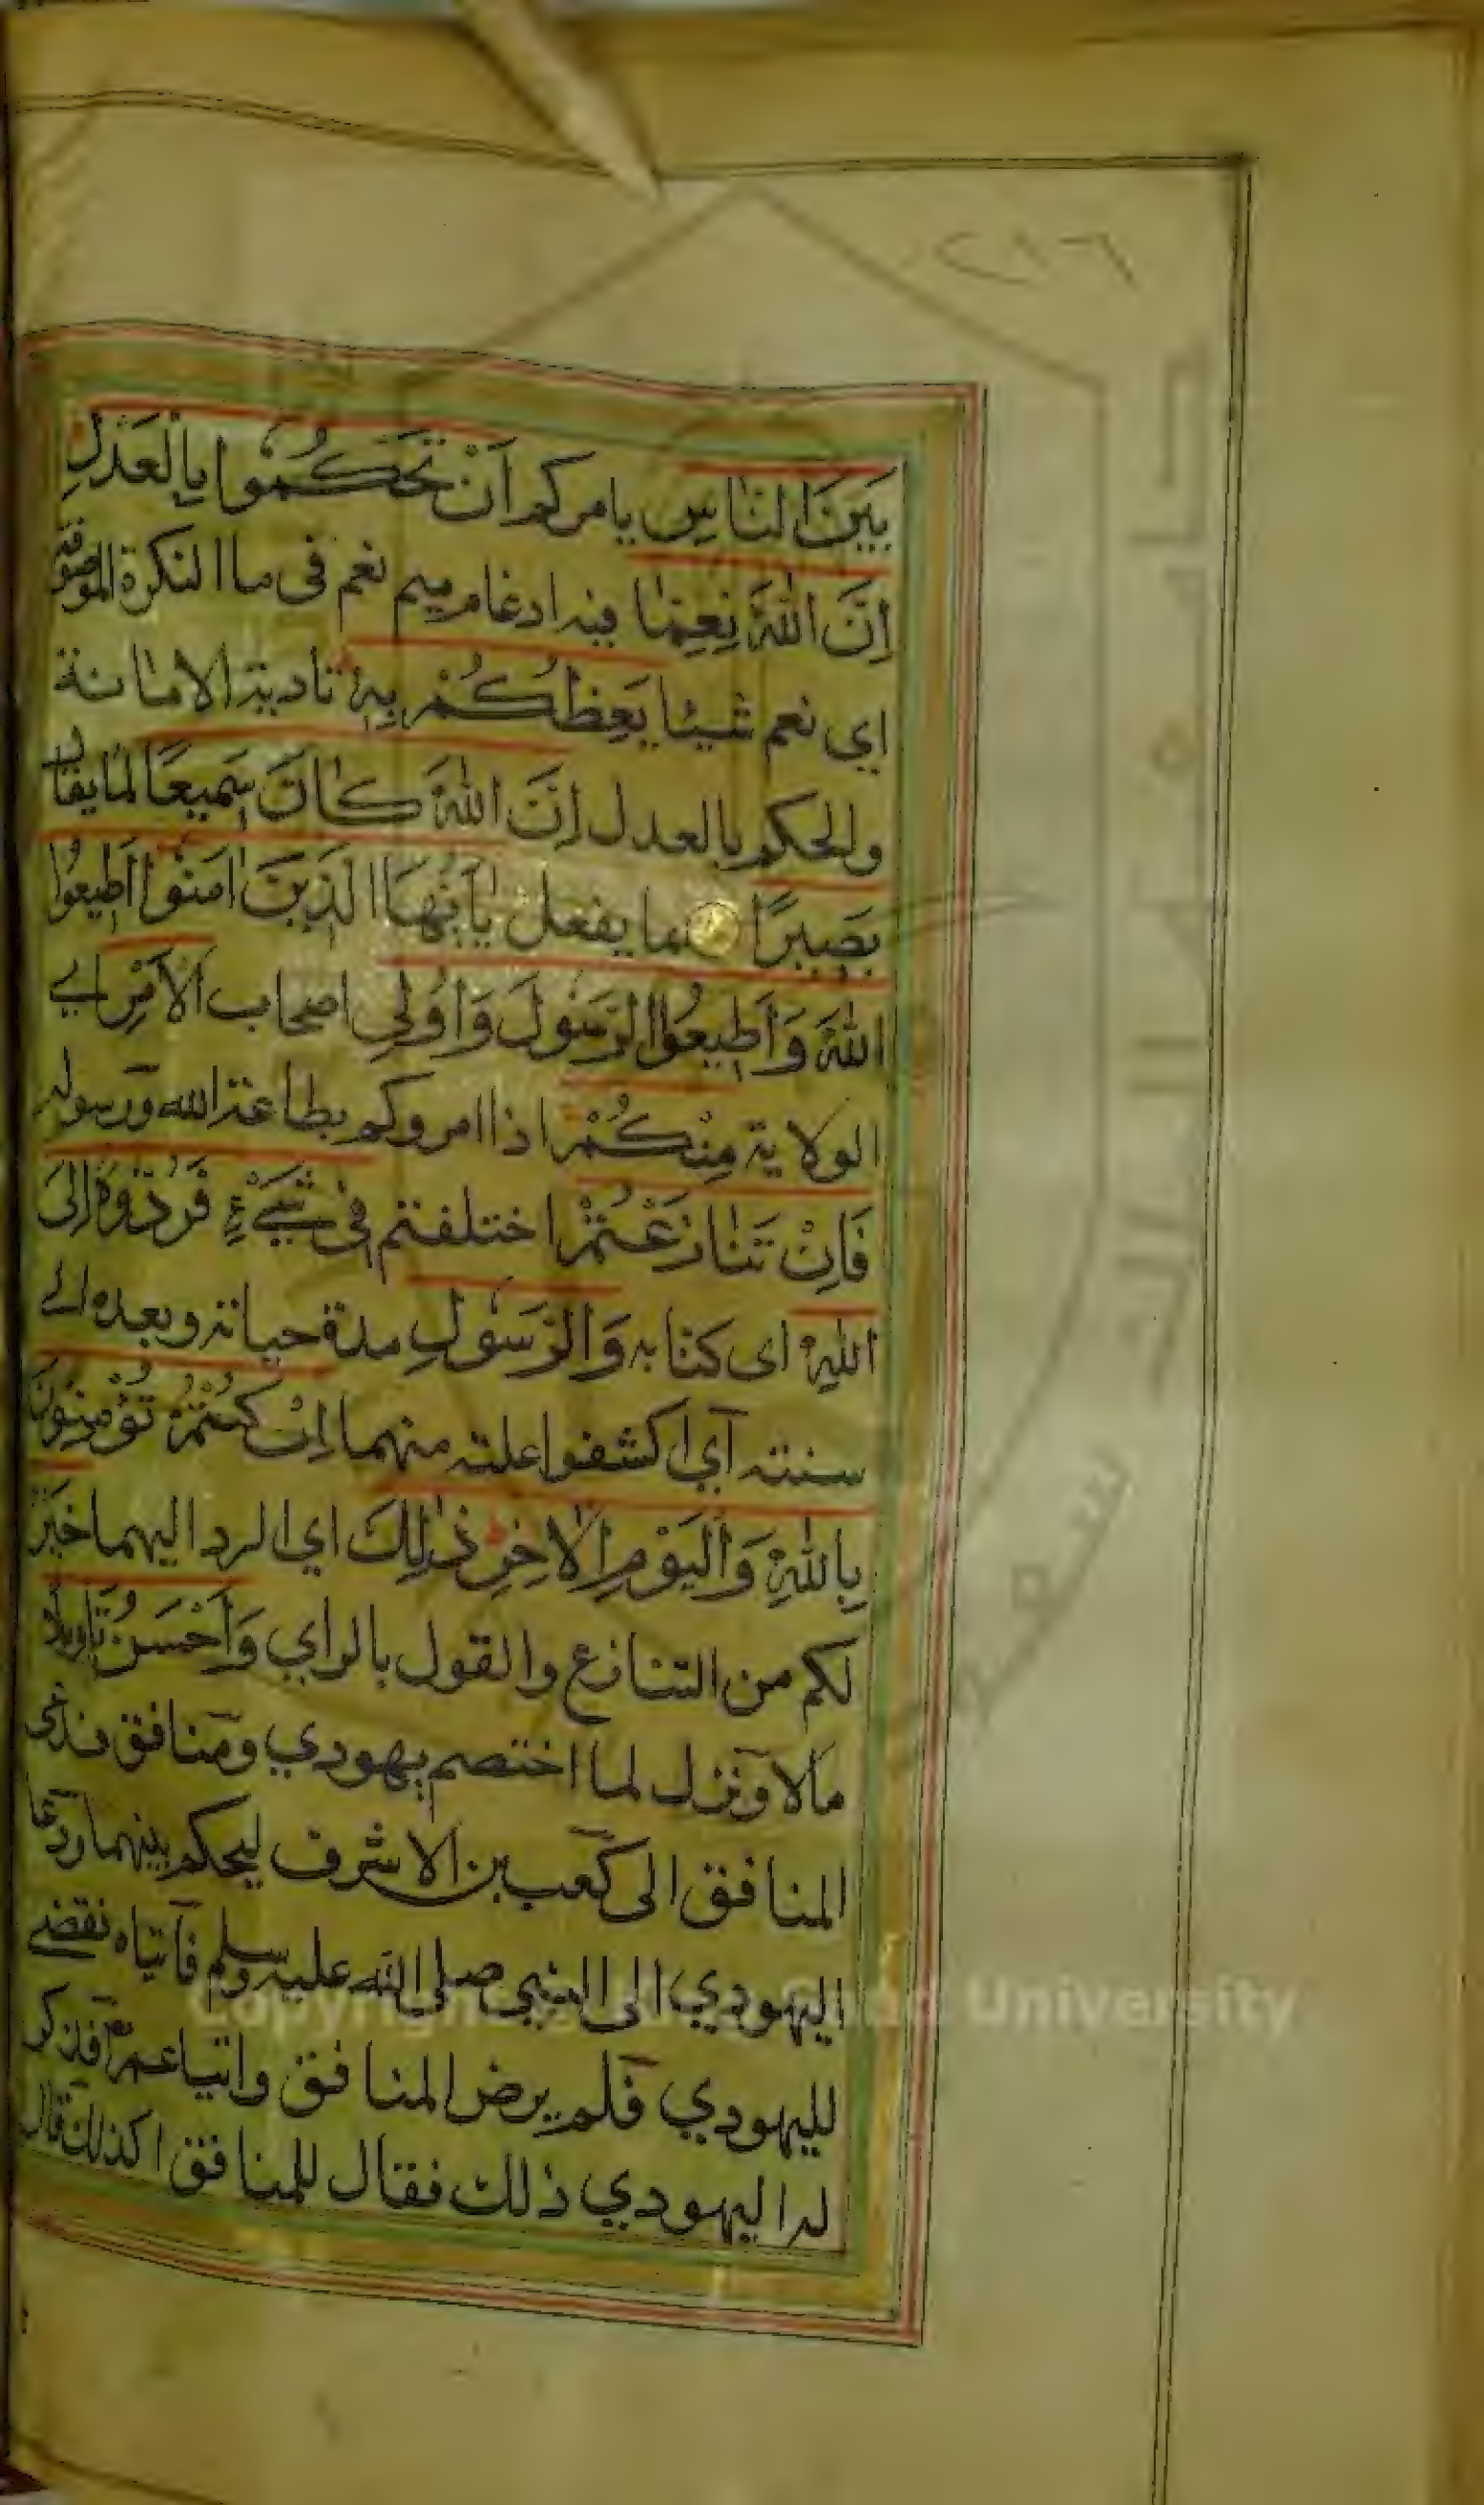 ٢٨٦
بَيْنَ النَّاسِ يامركم اَنْ تَحْكُمُوا بِالْعَدْلِ
اِنَّ اللّٰهَ نِعِمَّا فيه ادغام ميم نعم فى ما النكرة الموصوفة
اي نعم شيئا يَعِظُكُمْ بِهٖ تادية الامانة
والحكم بالعدل اِنَّ اللّٰهَ كَانَ سَمِيعًا لما يقال
بَصِيرًا بما يفعل يٰٓاَيُّهَا الَّذِينَ اٰمَنُوا اَطِيعُوا
اللّٰهَ وَاَطِيعُوا الرَّسُولَ وَاُولِي اصحاب الْاَمْرِ اي
الولاية مِنْكُمْ اذا امروكم بطاعة الله ورسوله
فَاِنْ تَنَازَعْتُمْ اختلفتم فِى شَيْءٍ فَرُدُّوهُ اِلَى
اللّٰهِ اى كتابه وَالرَّسُولِ مدة حياته وبعده الى
سنته اي اكشفوا علته منهما اِنْ كُنْتُمْ تُؤْمِنُونَ
بِاللّٰهِ وَالْيَوْمِ الْاٰخِرِ ذٰلِكَ اي الرد اليهما خَيْرٌ
لكم من التنازع والقول بالراي وَاَحْسَنُ تَاْوِيلًا
مالا ونزل لما اختصم يهودي ومنافق فدعى
المنافق الى كعب بن الاشرف ليحكم بينهما ودعا
اليهودي الى النبي صلى الله عليه وسلم فاتياه فقضى
لليهودي فلم يرض المنافق واتيا عمر فذكر
له اليهودي ذلك فقال للمنافق اكذلك قال
Copyright © King Saud University